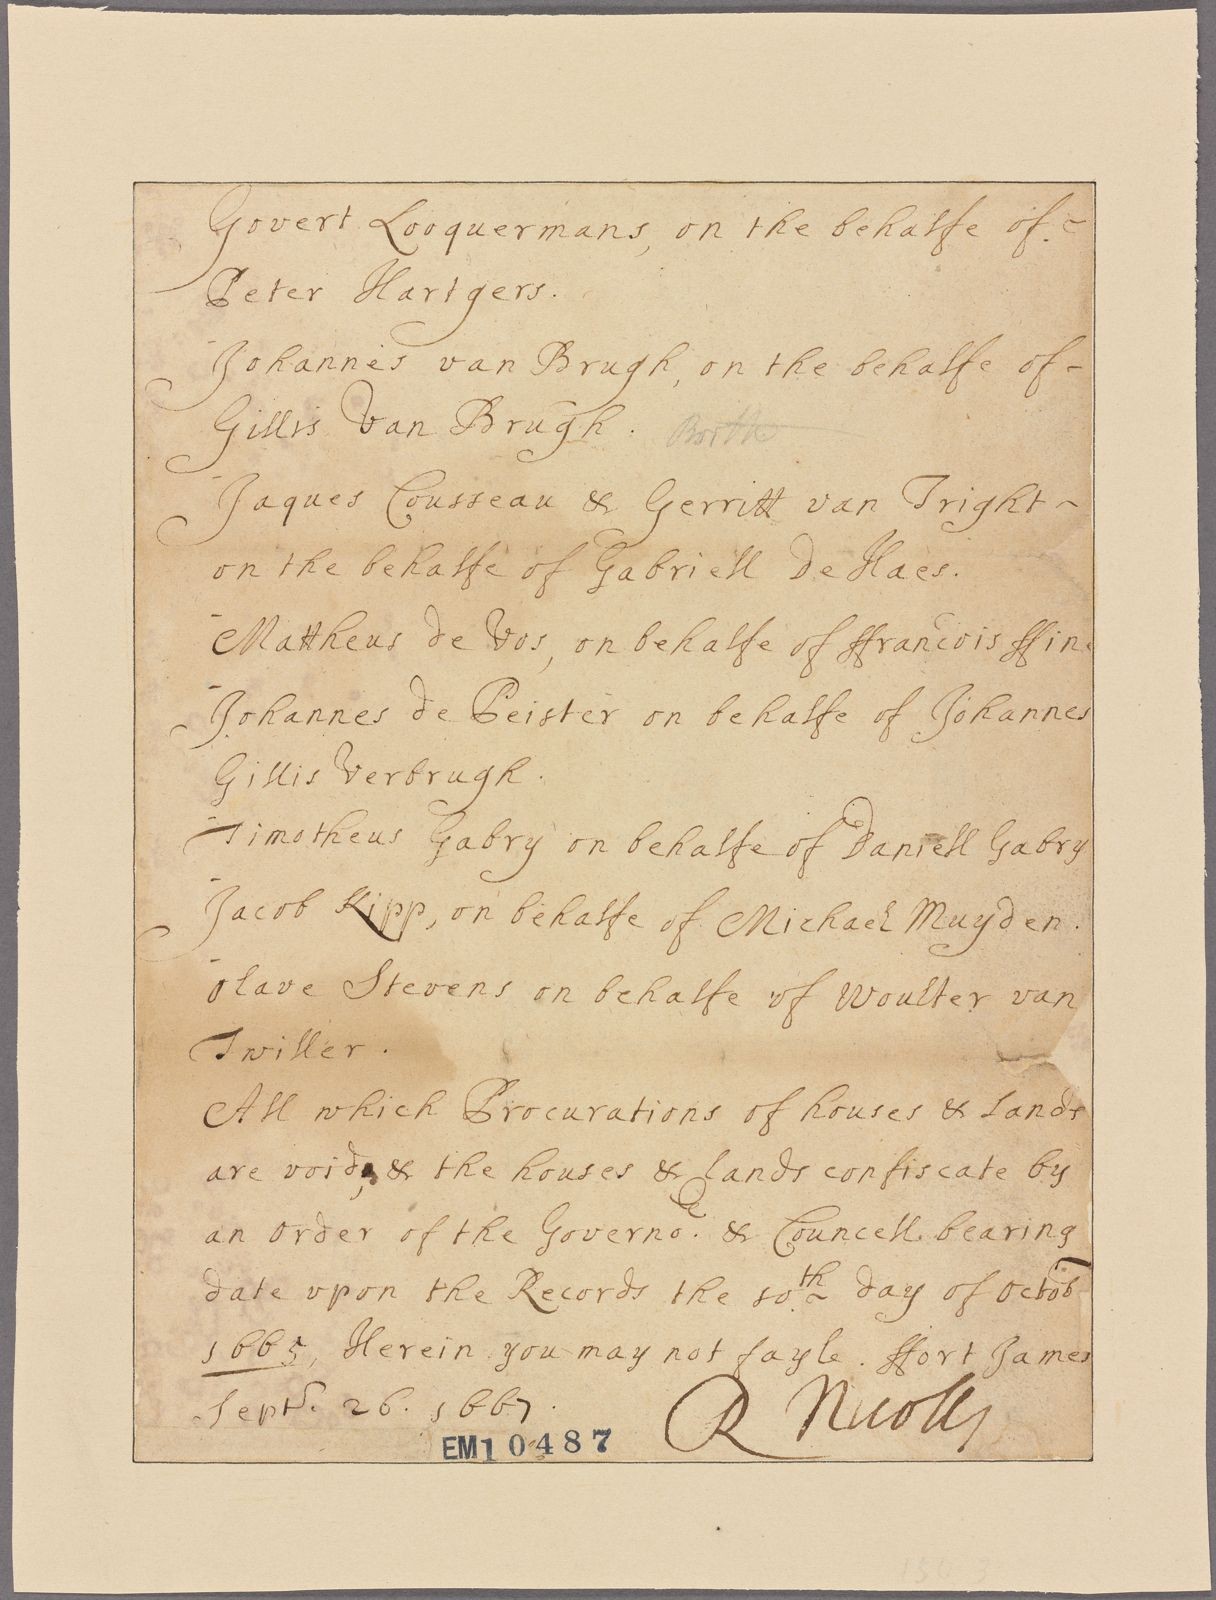 Govert Looquermans, on the behalfe of
Peter Hartgers.
Johannes van Brugh, on the behalfe of-
Gillis Van Brugh.
Jaques Cousseau & Gerritt van Tright~
on the behalfe of Gabriell De Haes.
Mattheus de Vos, on behalfe of ffrancois ffine
Johannes de Peister on behalfe of Johannes
Gillis Verbrugh.
Timotheus Gabry on behalfe of Daniell Gabry
Jacob Kipp, on behalfe of Michael Muyden.
Olave Stevens on behalfe of Woulter van
Twiller.
All which Procurations of houses & Lands
are void, & the houses & lands confiscate by
an Order of the Governor. & Councell bearing
date upon the Records the 10th day of Octob
1665, Herein you may not fayle. ffort James
Septr. 26. 1667.
R Nicolls
EM10487